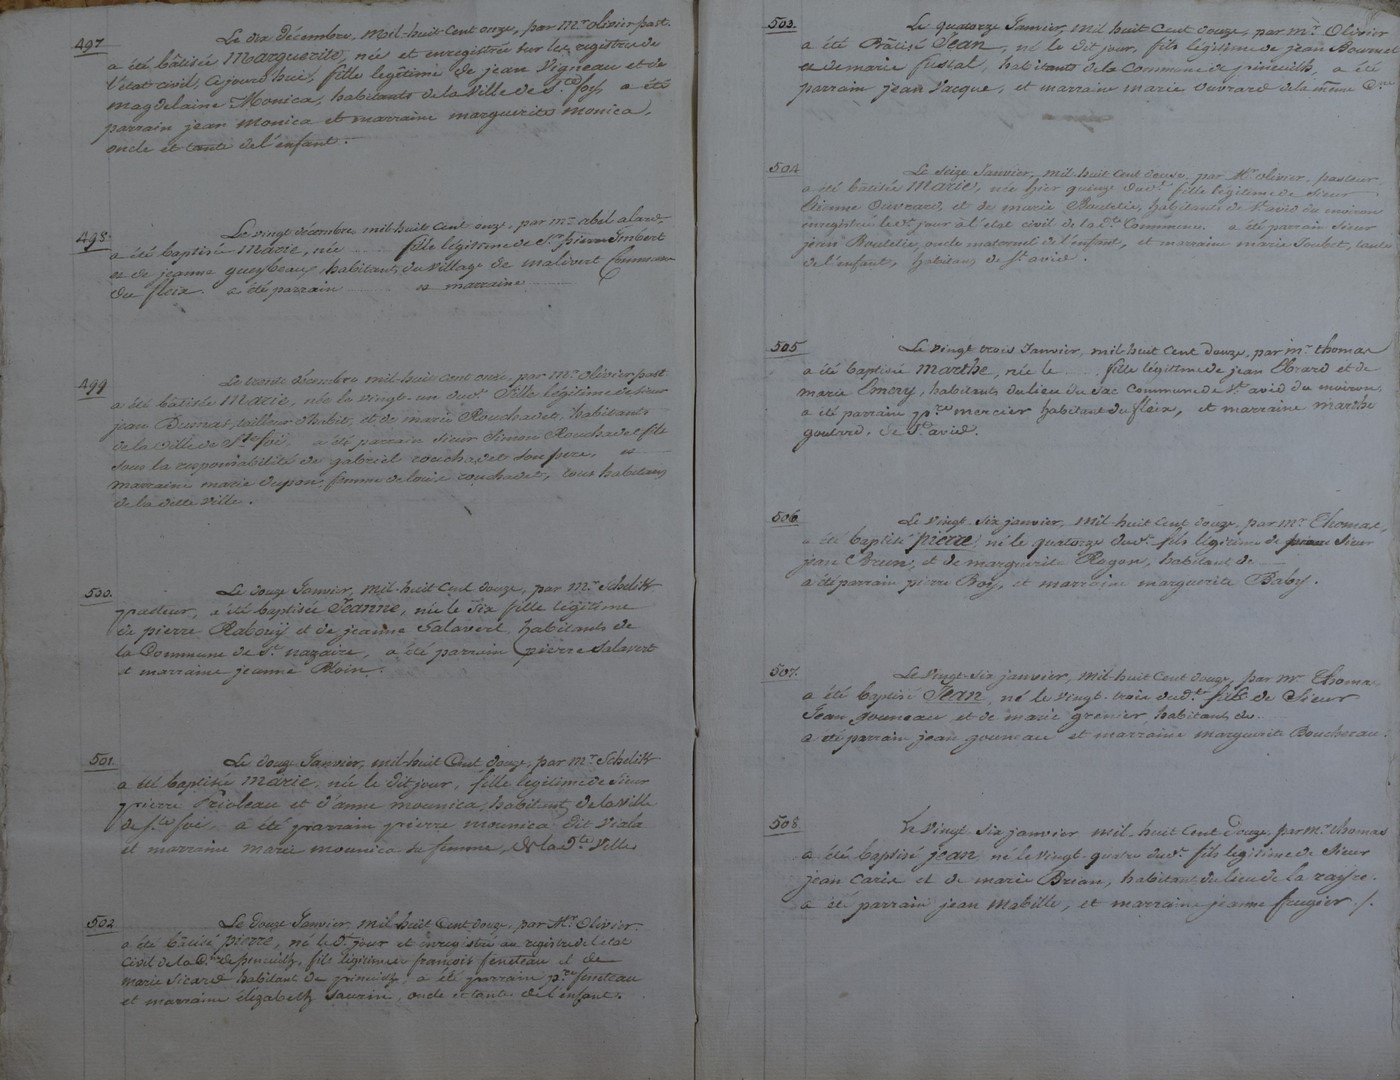 497
Le dix décembre, mil-huit-cent onze, par mr olivier past.
a été bâtisée Marguerite, née et enregistrée sur les registre de
l'état civil, Ajourd'hui, fille legitime de jean Vigneau et de
Magdelaine Monica, habitants de la Ville de Ste foy, a été
parrain jean Monica et marraine marguerite monica,
oncle et tante de l'enfant.
498.
Le vingt décembre, mil-huit cent onze, par mr abel alard,
a été baptisé Marie, née fille légitime de Sr pierre Imbert
et de jeanne queyreau, habitants du village de malivert Commune
du fleix. a été parrain et marraine
499
Le trente décembre, mil-huit cent onze, par Mr olivier past.
a été bâtisée Marie, née le vingt-un dud. fille légitime de sieur
jean Dumas, tailleur d'habit, et de marie Rouchadet, habitants
de la ville de Ste foi. a été parrain sieur Simon Rouchadet fils
sous la responsabilité de gabriel rouchadet son pere, et
marraine marie dupon, femme de louis rouchadet, tous habitans
de la ditte ville.
500.
Le douze Janvier, mil-huit Cent douze, par mr Schelitt
pasteur, a été baptisée Jeanne, née le Six fille légitime
de pierre Rabouÿ et de jeanne Salavert, habitants de
la Commune de St nazaire, a été parrain pierre Salavert
et marraine jeanne Ploin.
501.
Le douze Janvier, mil-huit Cent douze, par mr Schelitt
a été baptisée marie, née le dit jour, fille legitime de Sieur
pierre Prioleau et d'anne mounica, habitant de la ville
de Ste foi, a été parrain pierre mounica dit Viala
et marraine marie mounica sa femme, de la dte Ville
502
Le Douze Janvier, mil-huit Cent douze, par Mr Olivier
a été bâtisé pierre, né le dt jour et enregistré au registre de l'etat
civil de la Cne de pineuilh, fils légitime de françois feneteau et de
marie Sicard habitant de pineuilh, a été parrain pre feneteau
et marraine élizabeth saurin, oncle et tante de l'enfant.
503.
Le quatorze Janvier, mil huit Cent douze, par mr. Olivier
a été Bâtisé Jean, né le dit jour, fils légitime de jean Bournet
et de marie fustal, habitants de la Commune de pineuilh, a été
parrain jean Jacque, et marraine marie Ouvrard de la même Cne
504
Le Seize Janvier, mil-huit Cent douze, par Mr olivier, pasteur,
a été bâtisée Marie, née hier quinze dud. fille légitime de Sieur
Etienne Ouvrard, et de marie Boutelie, habitants de St avid du moiron
enregistrée le dt jour à l'état civil de la dte Commune a été parrain Sieur
jean Boutelie, oncle maternel de l'enfant, et marraine marie Joubert, tante
de l'enfant, habitans de St avid.
505
Le vingt trois Janvier, mil-huit Cent Douze, par mr thomas
a été baptisée marthe, née le fille légitime de jean Ebrard et de
marie Emery, habitants du lieu du Sac Commune de St avid du moiron,
a été parrain pre mercier habitant du fleix, et marraine marthe
goulard, de St avid.
506
Le vingt-six janvier, mil-huit Cent douze, par mr Thomas,
a été baptisé pierre, né le quatorze dudt fils légitime de Sieur
jean Brun, et de marguerite Rogon, habitant de
a été parrain pierre Roy, et marraine marguerite Baby.
507.
Le vingt-six janvier, mil-huit Cent douze, par mr Thomas
a été baptisé Jean, né le vingt-trois dudt fils de Sieur
Jean gouneau et de marie grenier, habitants de
a été parrain jean gouneau et marraine marguerite Boucherau.
508
Le vingt six janvier mil huit Cent Douze, par mr thomas
a été baptisé jean né le vingt-quatre dudt. fils legitime de Sieur
jean Carié et de marie Brian, habitant du lieu de la rayre.
a été parrain jean Mabille, et marraine jeanne feugier ./.